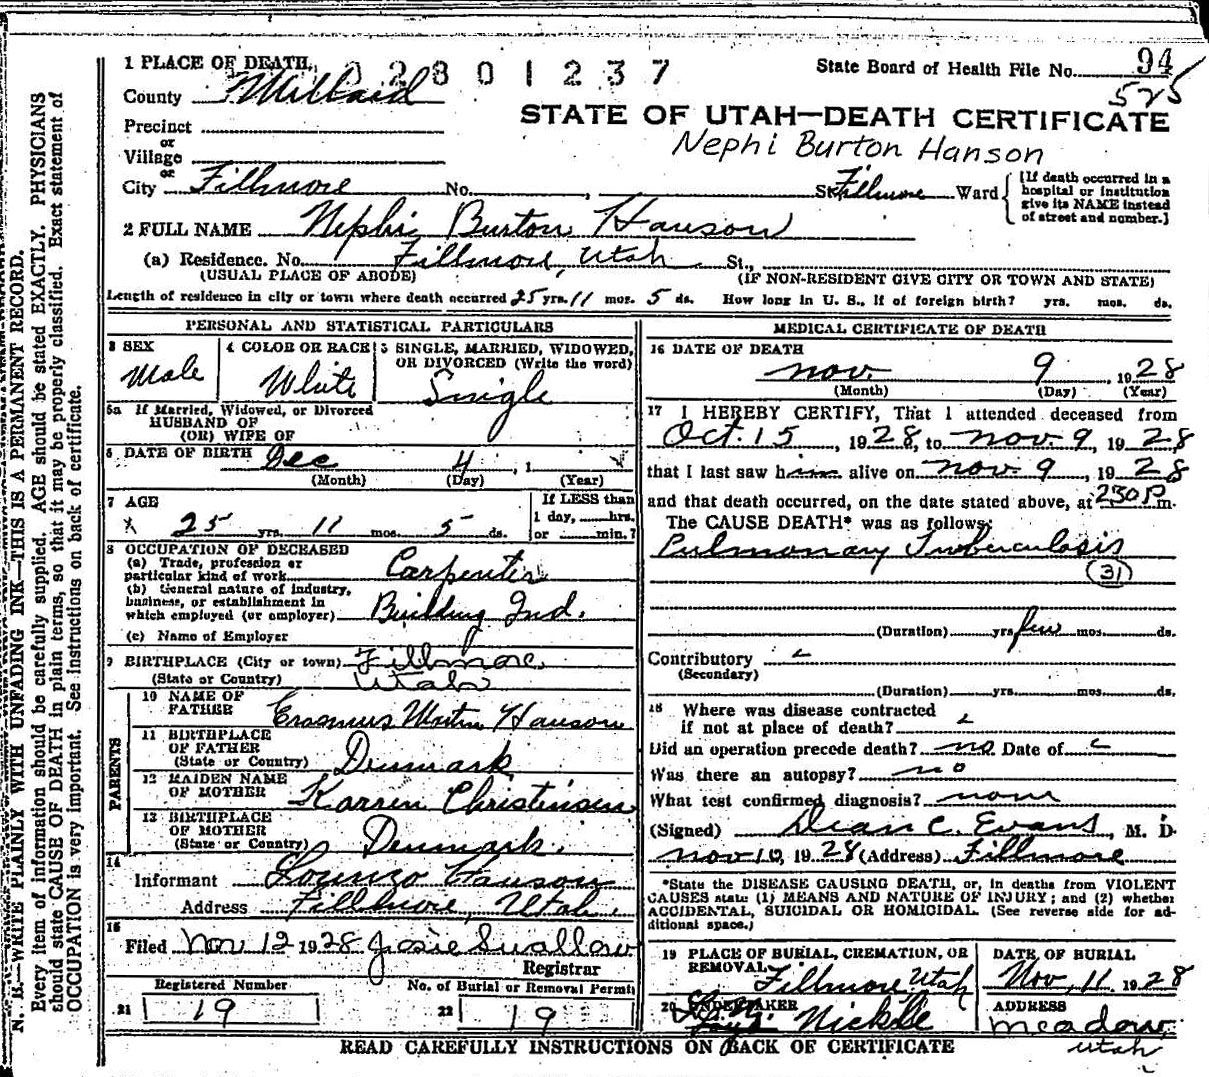 N. B.—WRITE PLAINLY WITH UNFADING INK—THIS IS A PERMANENT RECORD.
Every item of information should be carefully supplied. AGE should be stated EXACTLY. PHYSICIANS
should state CAUSE OF DEATH in plain terms, so that it may be properly classified. Exact statement of
OCCUPATION is very important. See instructions on back of certificate.
1 PLACE OF DEATH 02801237 State Board of Health File No. 94
County Millard 525
STATE OF UTAH—DEATH CERTIFICATE
Precinct
or
Village
Nephi Burton Hanson
or
City Fillmore No. , St. Fillmore Ward
[If death occurred in a
hospital or institution
give its NAME instead
of street and number.]
2 FULL NAME Nephi Burton Hanson
(a) Residence. No. Fillmore, Utah St.,
(USUAL PLACE OF ABODE) (IF NON-RESIDENT GIVE CITY OR TOWN AND STATE)
Length of residence in city or town where death occurred 25 yrs. 11 mos. 5 ds. How long in U. S., if of foreign birth? yrs. mos. ds.
PERSONAL AND STATISTICAL PARTICULARS
3 SEX
Male
4 COLOR OR RACE
White
5 SINGLE, MARRIED, WIDOWED,
OR DIVORCED (Write the word)
Single
5a If Married, Widowed, or Divorced
HUSBAND OF
(OR) WIFE OF
6 DATE OF BIRTH Dec 4, 1
(Month) (Day) (Year)
7 AGE
25 yrs. 11 mos. 5 ds.
If LESS than
1 day, hrs.
or min.?
8 OCCUPATION OF DECEASED
(a) Trade, profession or
particular kind of work Carpenter
(b) General nature of industry,
business, or establishment in
which employed (or employer) Building Ind.
(c) Name of Employer
9 BIRTHPLACE (City or town) Fillmore
(State or Country) Utah
PARENTS
10 NAME OF
FATHER Erasmus Martin Hanson
11 BIRTHPLACE
OF FATHER
(State or Country) Denmark
12 MAIDEN NAME
OF MOTHER Karren Christensen
13 BIRTHPLACE
OF MOTHER
(State or Country) Denmark.
14
Informant Lorenzo Hanson
Address Fillmore, Utah.
15
Filed Nov 12 1928 Josie Swallow
Registrar
Registered Number
21 19
No. of Burial or Removal Permit
22 19
MEDICAL CERTIFICATE OF DEATH
16 DATE OF DEATH
Nov. 9, 1928
(Month) (Day) (Year)
17 I HEREBY CERTIFY, That I attended deceased from
Oct. 15, 1928, to Nov. 9, 1928
that I last saw him alive on Nov. 9, 1928
and that death occurred, on the date stated above, at 230 P.m.
The CAUSE DEATH* was as follows:
Pulmonary Tuberculosis
31
(Duration) yrs few mos. ds.
Contributory
(Secondary)
(Duration) yrs. mos. ds.
18 Where was disease contracted
if not at place of death?
Did an operation precede death? no Date of
Was there an autopsy? no
What test confirmed diagnosis? none
(Signed) Dean C. Evans, M. D.
Nov 10, 1928 (Address) Fillmore
*State the DISEASE CAUSING DEATH, or, in deaths from VIOLENT
CAUSES state (1) MEANS AND NATURE OF INJURY; and (2) whether
ACCIDENTAL, SUICIDAL OR HOMICIDAL. (See reverse side for ad-
ditional space.)
19 PLACE OF BURIAL, CREMATION, OR
REMOVAL Fillmore Utah
DATE OF BURIAL
Nov. 11 1928
20 UNDERTAKER
Nickle
ADDRESS
Meadow
Utah
READ CAREFULLY INSTRUCTIONS ON BACK OF CERTIFICATE